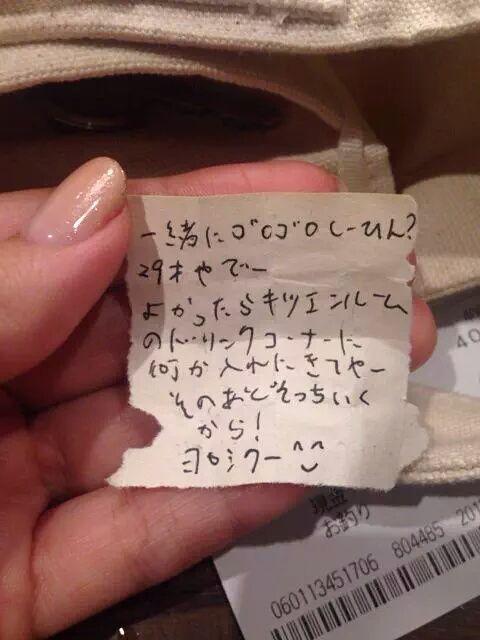 一緒にゴロゴロしーひん?
29才やでー
よかったらキツエンルーム
のドリンクコーナーに
何か入れにきてやー
そのあとそっちいく
から!
ヨロシクー ^^
現金
お釣り
060113451706 804485 201
40